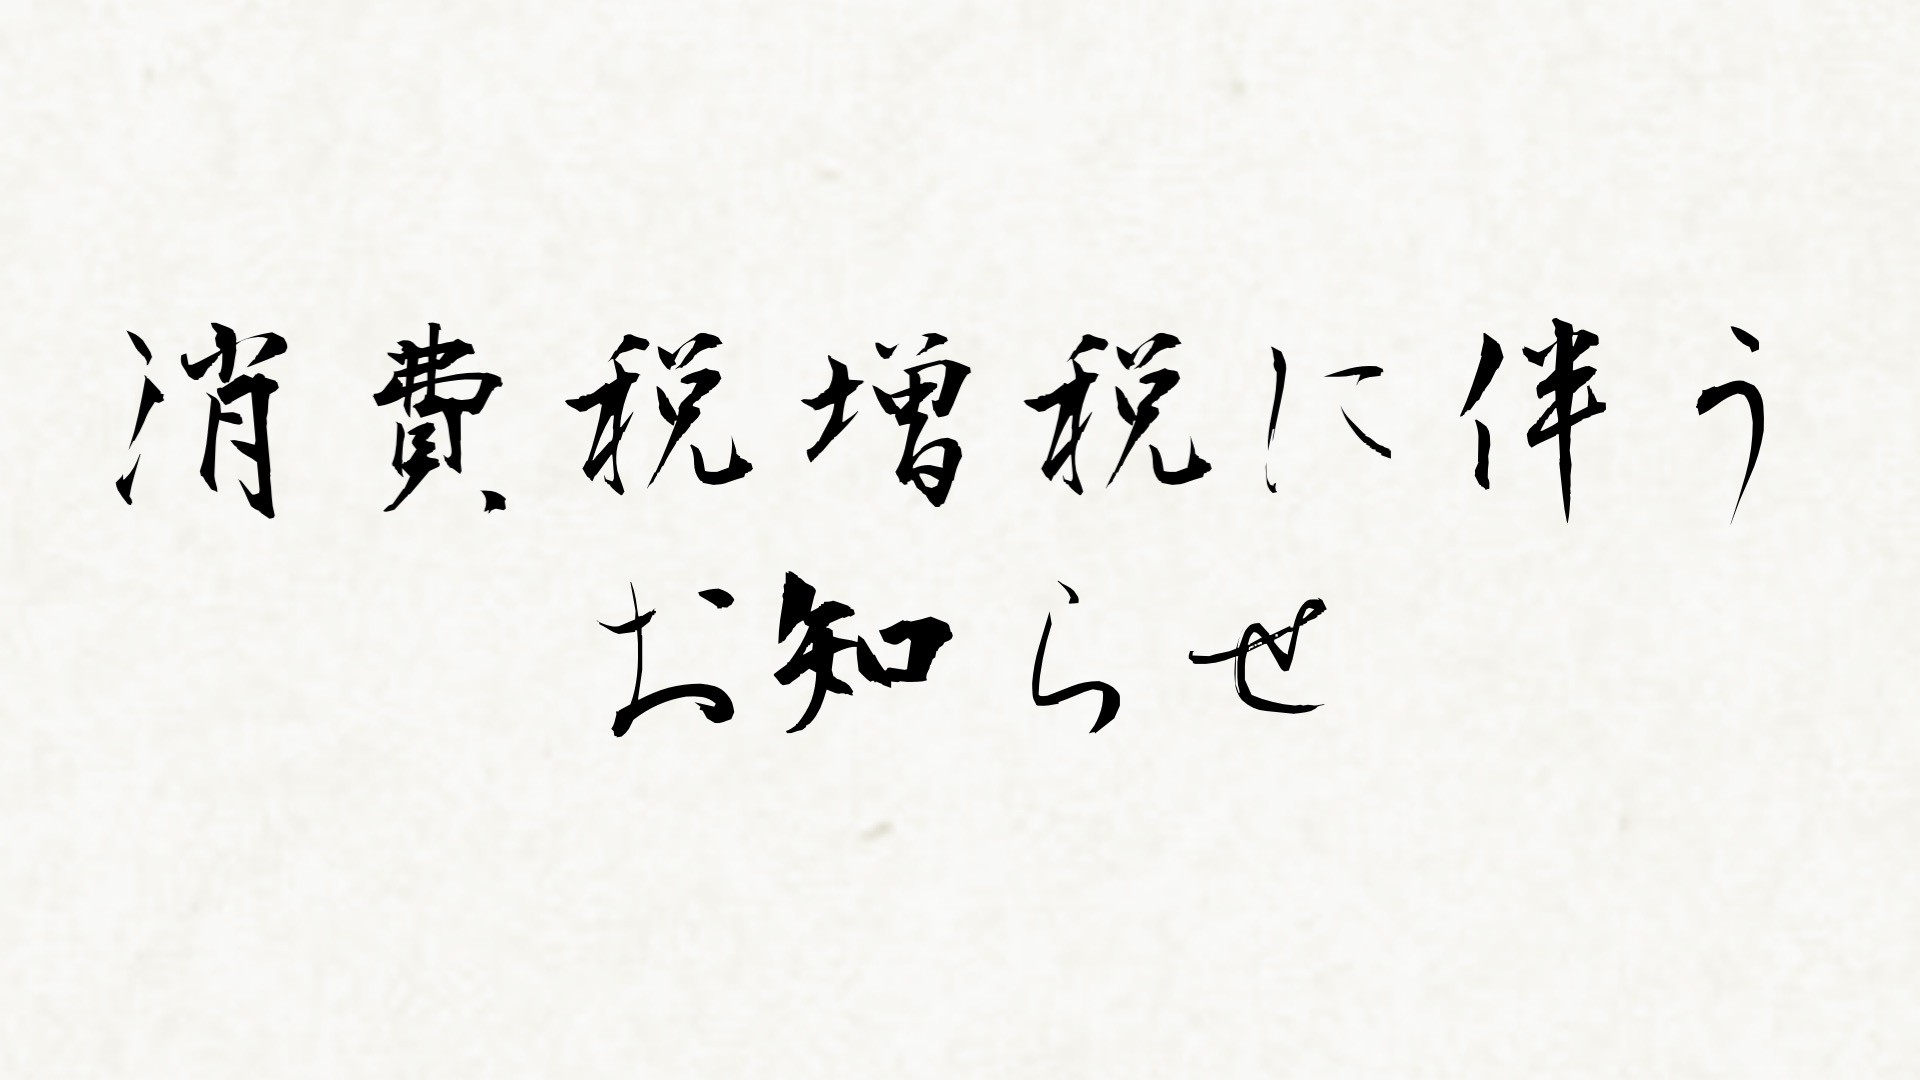 消費税増税に伴う
お知らせ